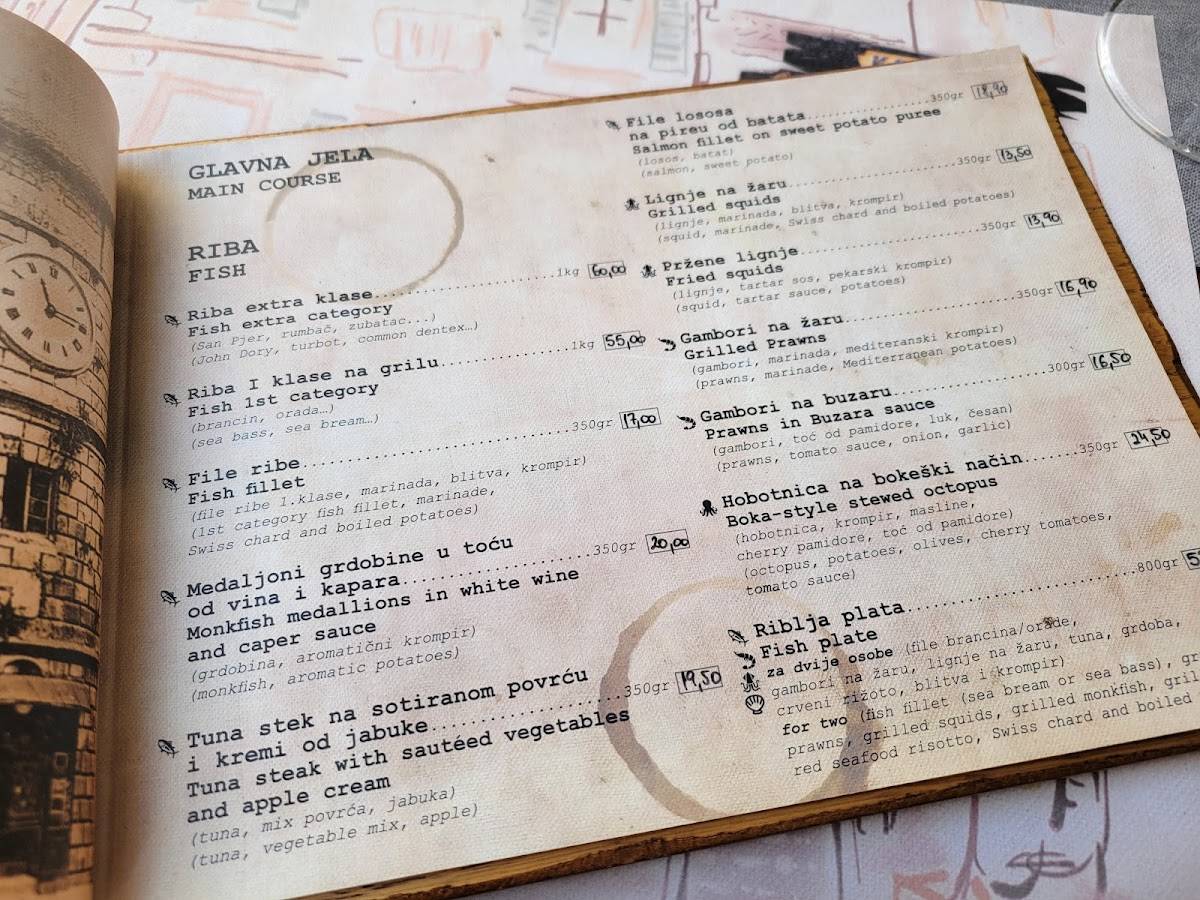 GLAVNA JELA
MAIN COURSE
RIBA
FISH
Riba extra klase..........................1kg 60,00
Fish extra category
(San Pjer, rumbač, zubatac...)
(John Dory, turbot, common dentex…)
Riba I klase na grilu..................1kg 55,00
Fish 1st category
(brancin, orada…)
(sea bass, sea bream…)
File ribe..............................350gr 17,00
Fish fillet
(file ribe 1.klase, marinada, blitva, krompir)
(1st category fish fillet, marinade,
Swiss chard and boiled potatoes)
Medaljoni grdobine u toću
od vina i kapara......................350gr 20,00
Monkfish medallions in white wine
and caper sauce
(grdobina, aromatični krompir)
(monkfish, aromatic potatoes)
Tuna stek na sotiranom povrću
i kremi od jabuke.....................350gr 19,50
Tuna steak with sautéed vegetables
and apple cream
(tuna, mix povrća, jabuka)
(tuna, vegetable mix, apple)
File lososa
na pireu od batata..................350gr 18,90
Salmon fillet on sweet potato puree
(losos, batat)
(salmon, sweet potato)
Lignje na žaru.........................350gr 13,50
Grilled squids
(lignje, marinada, blitva, krompir)
(squid, marinade, Swiss chard and boiled potatoes)
Pržene lignje...........................350gr 13,90
Fried squids
(lignje, tartar sos, pekarski krompir)
(squid, tartar sauce, potatoes)
Gambori na žaru........................350gr 16,90
Grilled Prawns
(gambori, marinada, mediteranski krompir)
(prawns, marinade, Mediterranean potatoes)
Gambori na buzaru.....................300gr 16,50
Prawns in Buzara sauce
(gambori, toć od pamidore, luk, česan)
(prawns, tomato sauce, onion, garlic)
Hobotnica na bokeški način.......350gr 24,50
Boka-style stewed octopus
(hobotnica, krompir, masline,
cherry pamidore, toć od pamidore)
(octopus, potatoes, olives, cherry tomatoes,
tomato sauce)
Riblja plata............................800gr
Fish plate
za dvije osobe (file brancina/orade,
gambori na žaru, lignje na žaru, tuna, grdoba,
crveni rižoto, blitva i krompir)
for two (fish fillet (sea bream or sea bass),
prawns, grilled squids, grilled monkfish,
red seafood risotto, Swiss chard and boiled